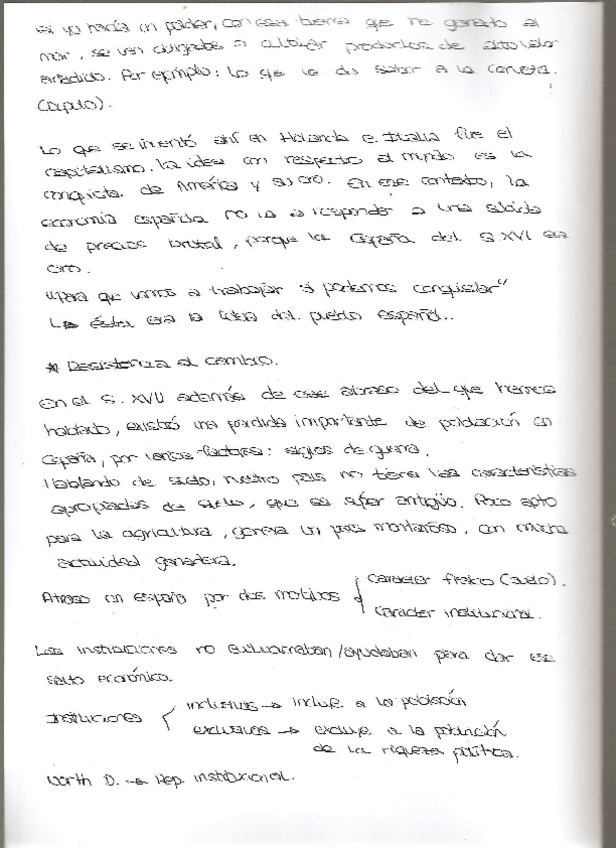 si yo hacía un pólder, con esa tierra que he ganado al
mar, se ven obligados a cultivar productos de alto valor
añadido. Por ejemplo: Lo que le da sabor a la cerveza.
(Lúpulo).
Lo que se inventó ahí en Holanda e Italia fue el
capitalismo. La idea con respecto al mundo es la
conquista de América y su oro. En ese contexto, la
economía española no va a responder a una subida
de precios brutal, porque la España del S.XVI era
oro.
"Para que vamos a trabajar si podemos conquistar"
La ésta era la idea del pueblo español..
* Resistencia al cambio.
En el S. XVII además de ese atraso del que hemos
hablado, existió una pérdida importante de población en
España, por varios factores: siglos de guerra.
Hablando de suelo, nuestro país no tiene las características
apropiadas de suelo, que es súper antigüo. Poco apto
para la agricultura, genera un país montañoso, con mucha
actividad ganadera.
Atraso en españa por dos motivos { Caracter físico (suelo).
Caracter institucional.
Las instituciones no evolucionaban/ayudaban para dar ese
salto económico.
Instituciones { inclusivas → incluye a la población
exclusivas → excluye a la población
de la riqueza política.
North D. → Rep. institucional.